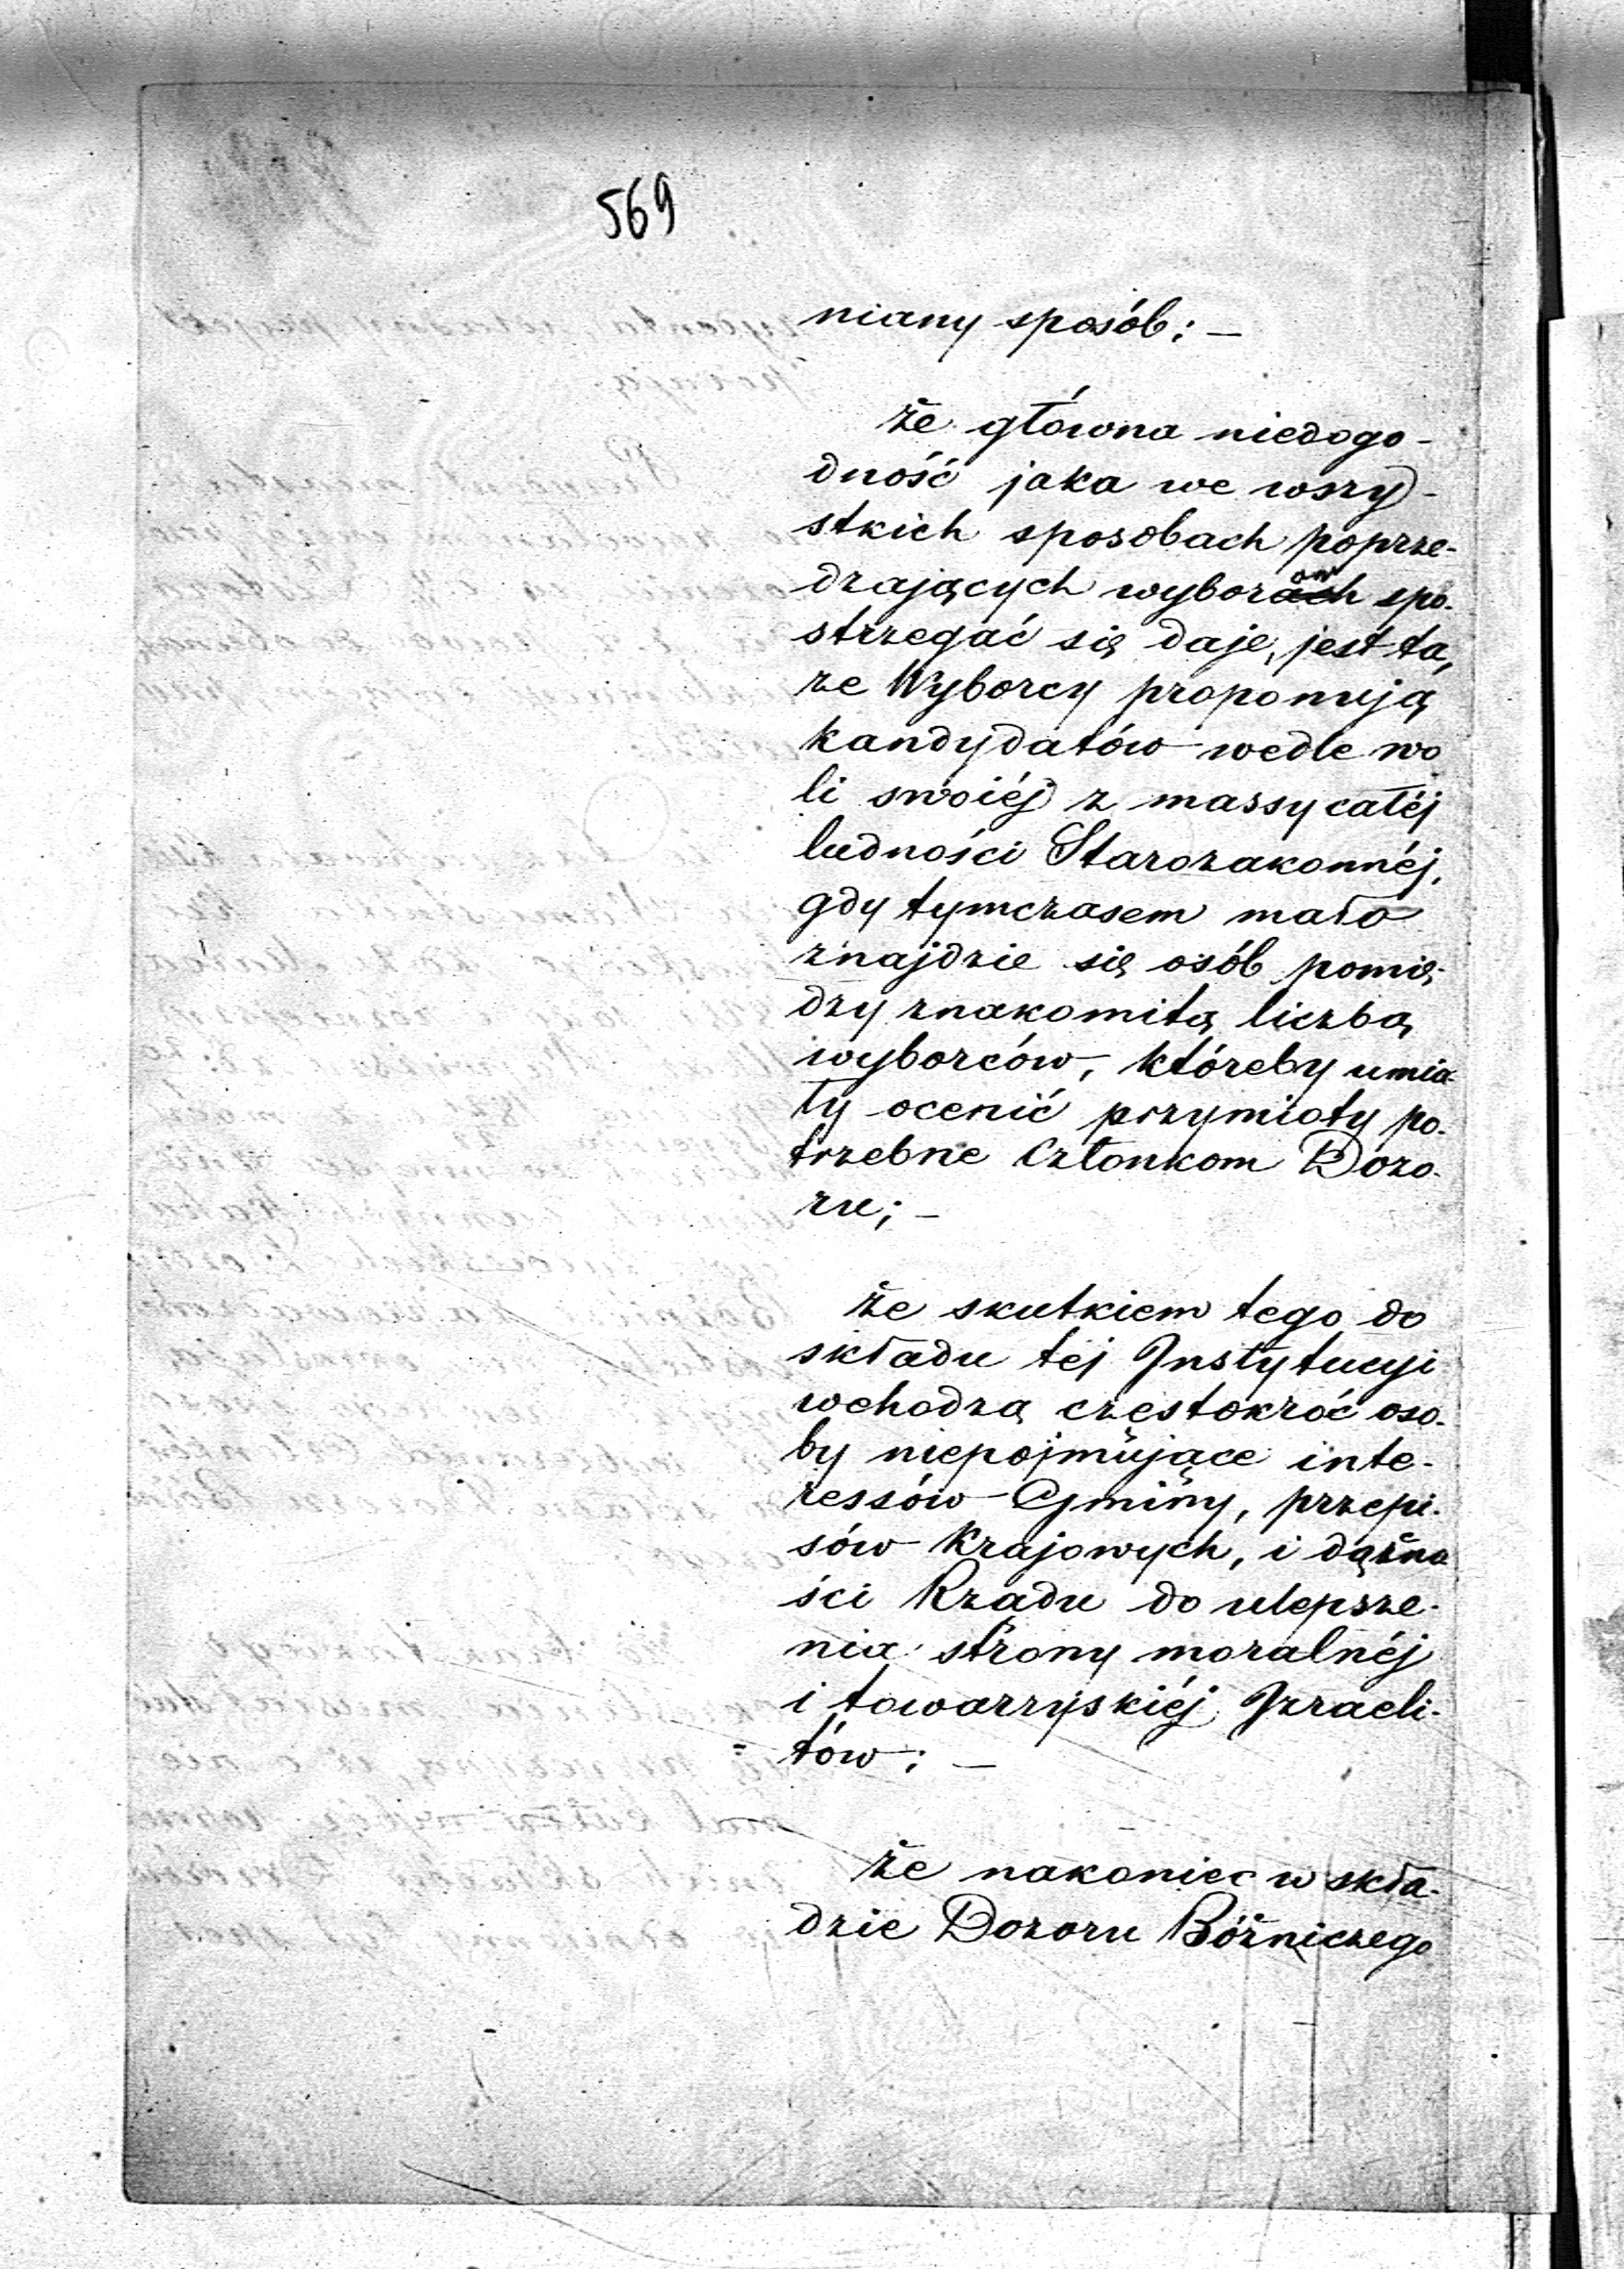 569
niany sposób; —
że główna niedogo-
dność jaka we wszy-
stkich sposobach poprze-
dzających wyborach spo-
strzegać się daje, jest ta,
że Wyborcy proponują
kandydatów wedle wo
li swoiéj z massy całéj
ludności Starozakonnéj,
gdy tymczasem mało
znajdzie się osób pomię-
dzy znakomitą liczbą
wyborców, któreby umia
ły ocenić przymioty po-
trzebne Członkom Dozo-
ru; —
że skutkiem tego do
składu téj Instytucyi
wchodzą częstokroć oso-
by niepojmujące inte-
ressów Gminy, przepi-
sów Krajowych, i dążno
ści Rządu do ulepsze-
nia strony moralnéj
i towarzyskiéj Izraeli-
tów; —
że nakoniec w skła-
dzie Dozoru Bóżniczego